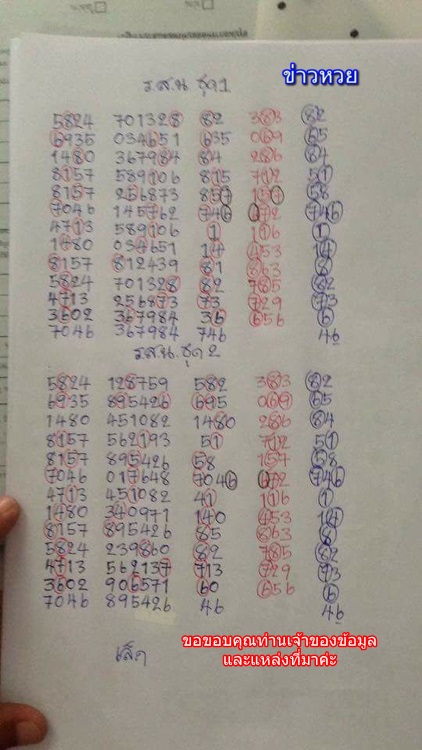 ข่าวหวย
ร.ส.น ชุด 1
5824 701328 82 383 82
6935 034651 635 069 65
1480 367984 84 286 84
8157 589106 815 712 51
8157 256873 857 157 58
7046 145762 746 072 746
4713 589106 1 116 1
1480 034651 14 453 14
8157 812439 81 863 8
5824 701328 82 785 82
4713 256873 73 729 73
3602 367984 36 656 6
7046 367984 746 46
ร.ส.น. ชุด 2
5824 128759 582 383 82
6935 895426 695 069 65
1480 451082 1480 286 84
8157 562193 51 712 51
8157 895426 58 157 58
7046 017648 7046 072 746
4713 451082 41 116 1
1480 340971 140 453 14
8157 895426 85 863 8
5824 239860 82 785 82
4713 562137 713 729 73
3602 906571 60 656 6
7046 895426 46 46
ขอขอบคุณท่านเจ้าของข้อมูล
และแหล่งที่มาค่ะ